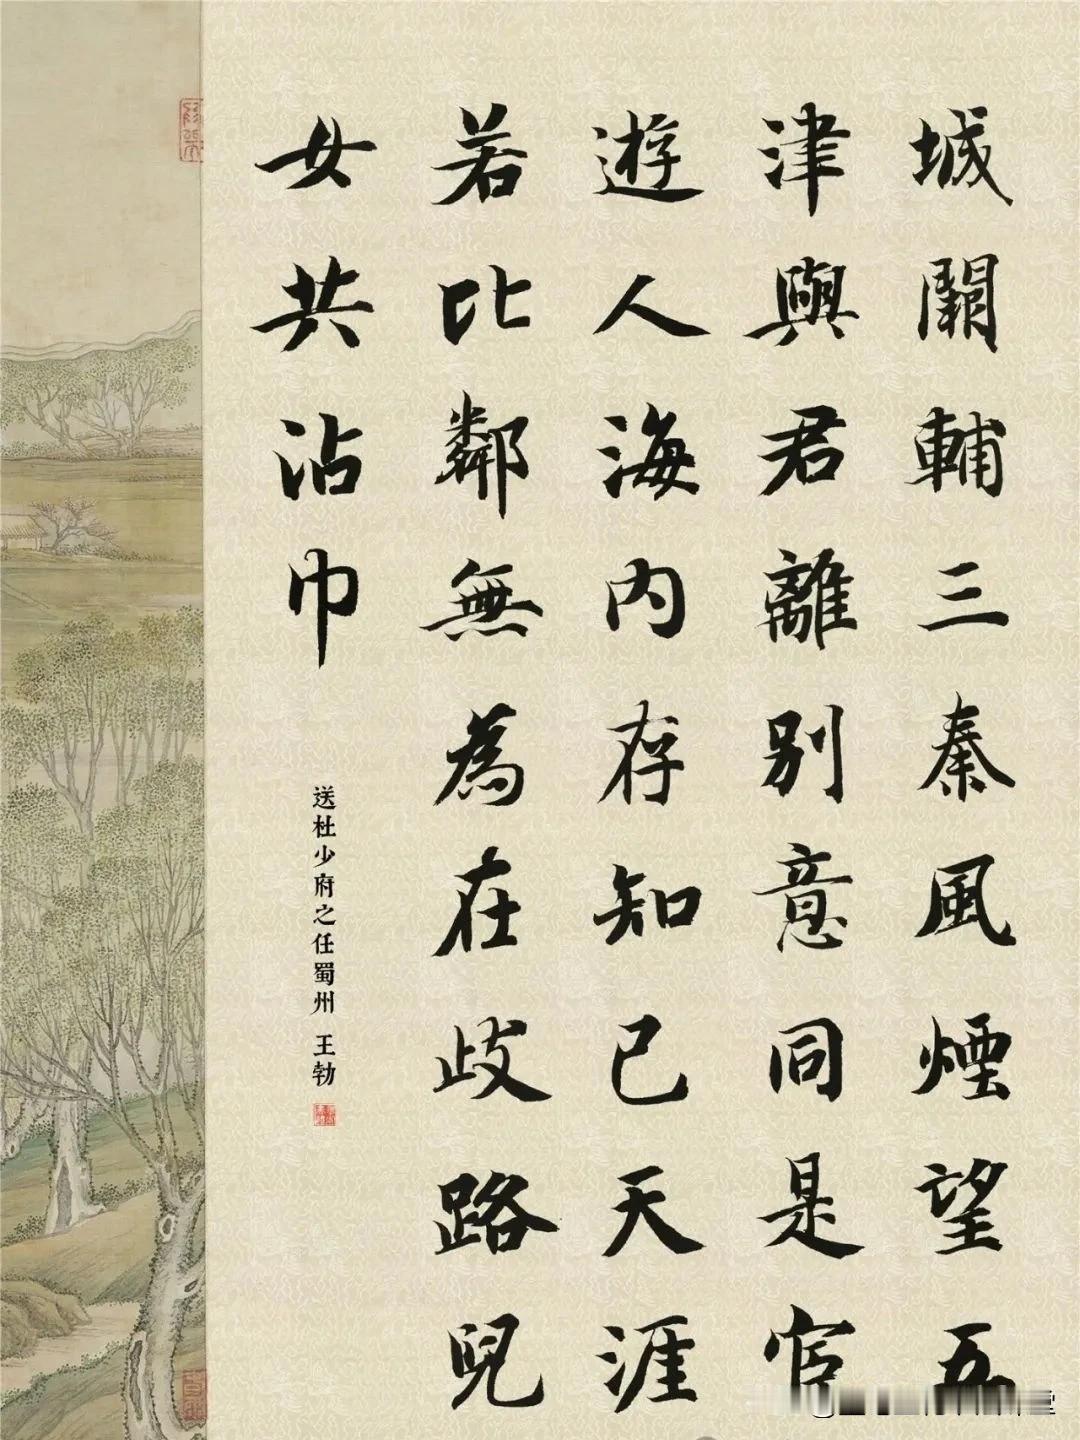 城闕輔三秦風煙望五
津與君離別意同是宦
遊人海內存知己天涯
若比鄰無為在歧路兒
女共沾巾
送杜少府之任蜀州 王勃